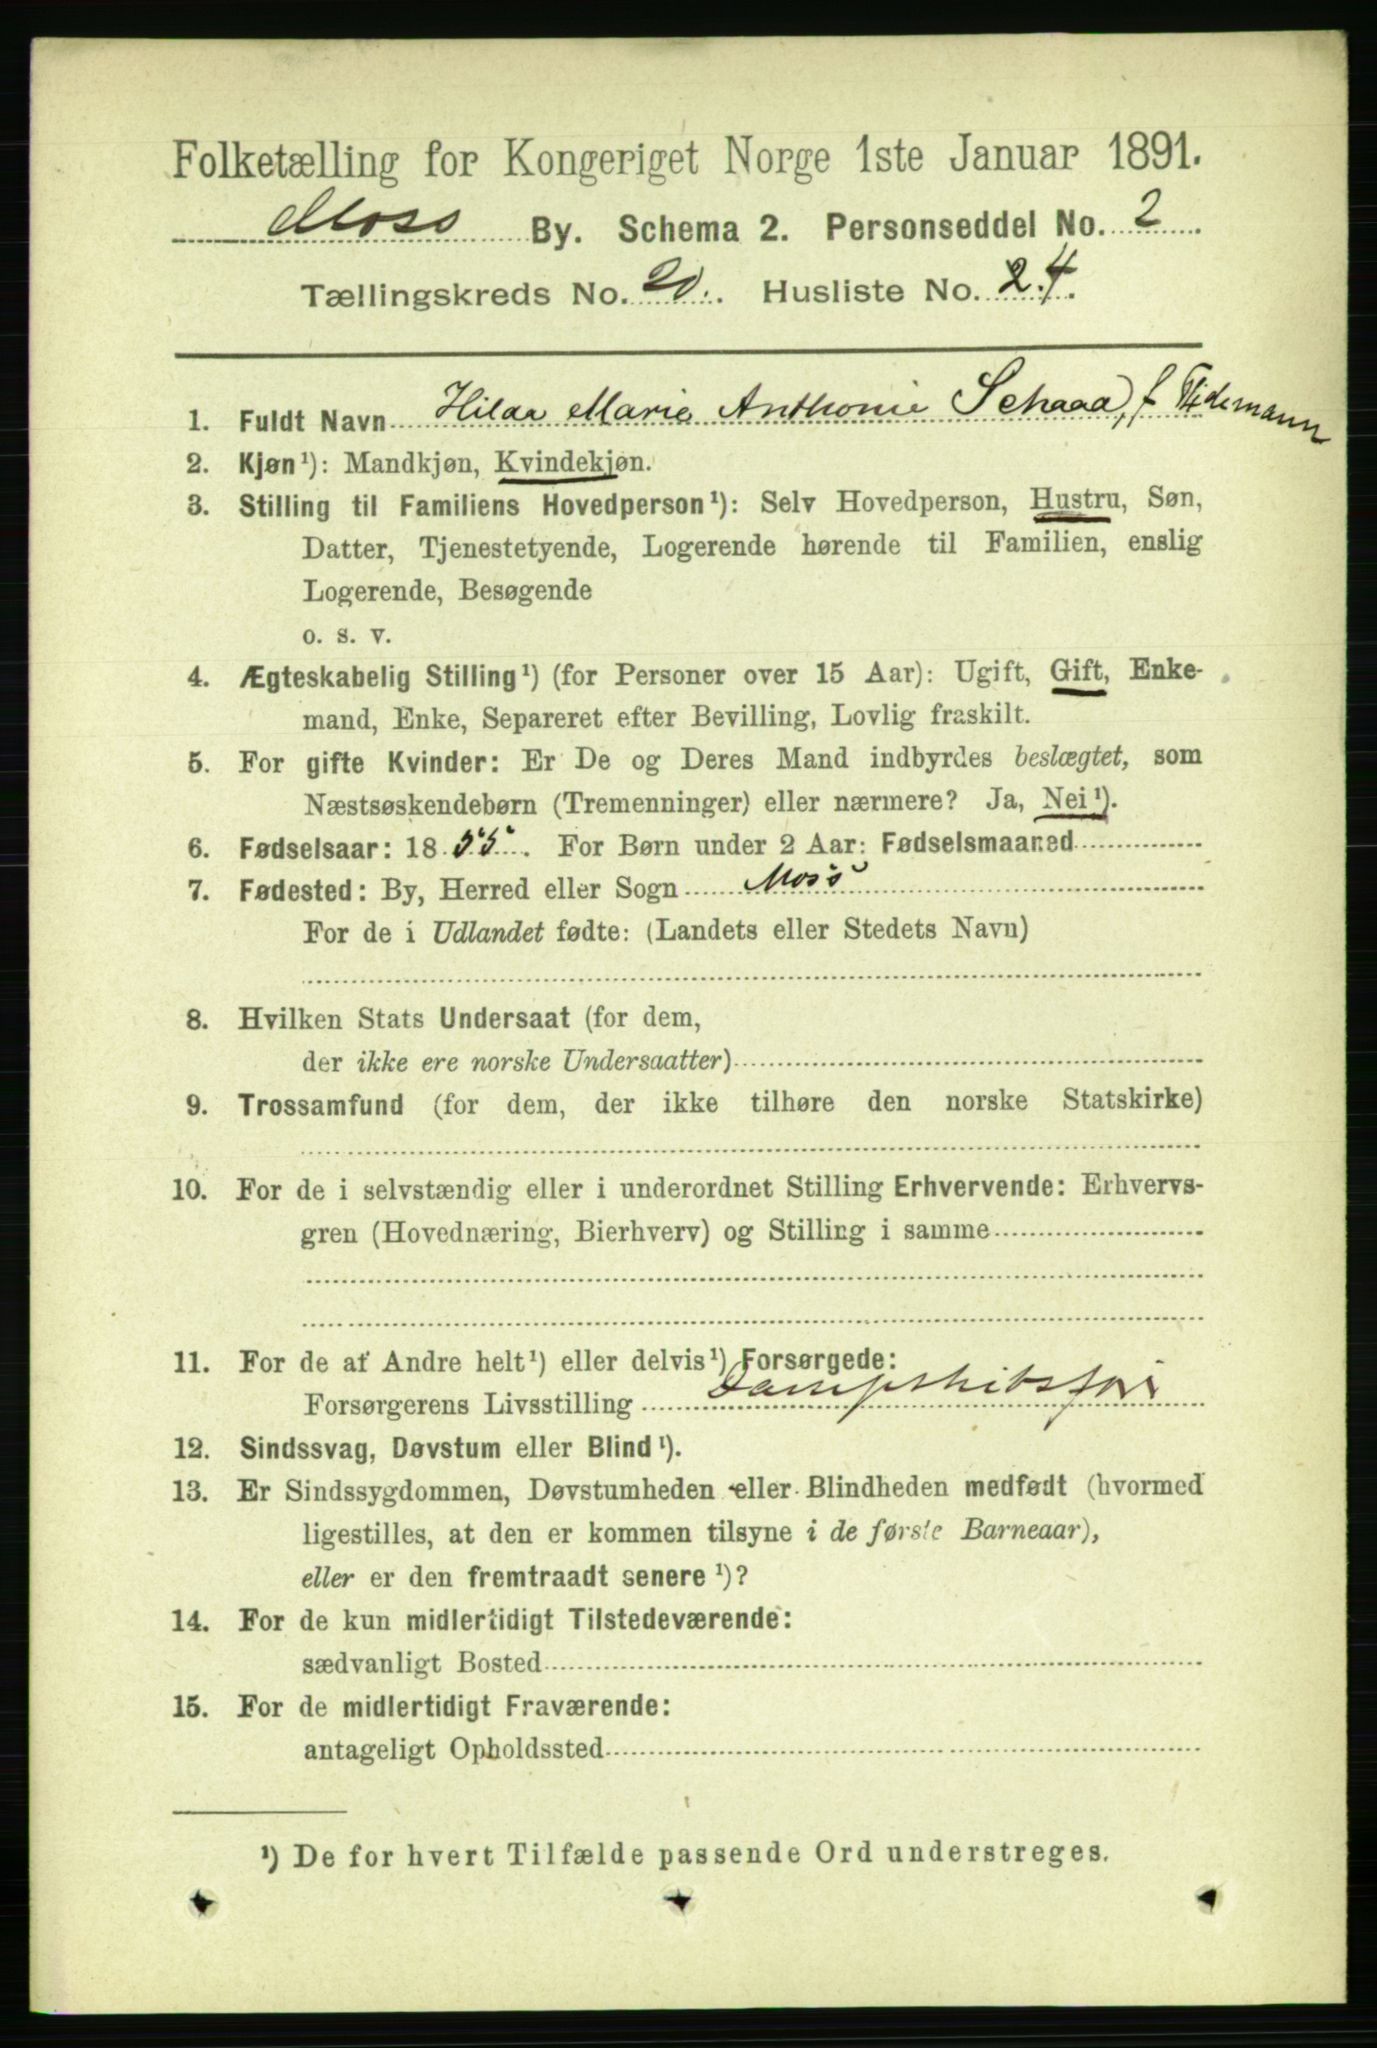 Folketælling for Kongeriget Norge 1ste Januar 1891.
Moss By. Schema 2. Personseddel No. 2
Tællingskreds No. 20. Husliste No. 24.
1. Fuldt Navn Hilda Marie Anthonie Schaad, f Tidemann
2. Kjøn¹): Mandkjøn, Kvindekjøn.
3. Stilling til Familiens Hovedperson¹): Selv Hovedperson, Hustru, Søn,
Datter, Tjenestetyende, Logerende hørende til Familien, enslig
Logerende, Besøgende
o. s. v.
4. Ægteskabelig Stilling¹) (for Personer over 15 Aar): Ugift, Gift, Enke-
mand, Enke, Separeret efter Bevilling, Lovlig fraskilt.
5. For gifte Kvinder: Er De og Deres Mand indbyrdes beslægtet, som
Næstsøskendebørn (Tremenninger) eller nærmere? Ja, Nei¹).
6. Fødselsaar: 1855. For Børn under 2 Aar: Fødselsmaaned
7. Fødested: By, Herred eller Sogn Moss
For de i Udlandet fødte: (Landets eller Stedets Navn)
8. Hvilken Stats Undersaat (for dem,
der ikke ere norske Undersaatter)
9. Trossamfund (for dem, der ikke tilhøre den norske Statskirke)
10. For de i selvstændig eller i underordnet Stilling Erhvervende: Erhvervs-
gren (Hovednæring, Bierhverv) og Stilling i samme
11. For de af Andre helt¹) eller delvis¹) Forsørgede:
Forsørgerens Livsstilling
12. Sindssvag, Døvstum eller Blind¹).
13. Er Sindssygdommen, Døvstumheden eller Blindheden medfødt (hvormed
ligestilles, at den er kommen tilsyne i de første Barneaar),
eller er den fremtraadt senere¹)?
14. For de kun midlertidigt Tilstedeværende:
sædvanligt Bosted
15. For de midlertidigt Fraværende:
antageligt Opholdssted
¹) De for hvert Tilfælde passende Ord understreges.